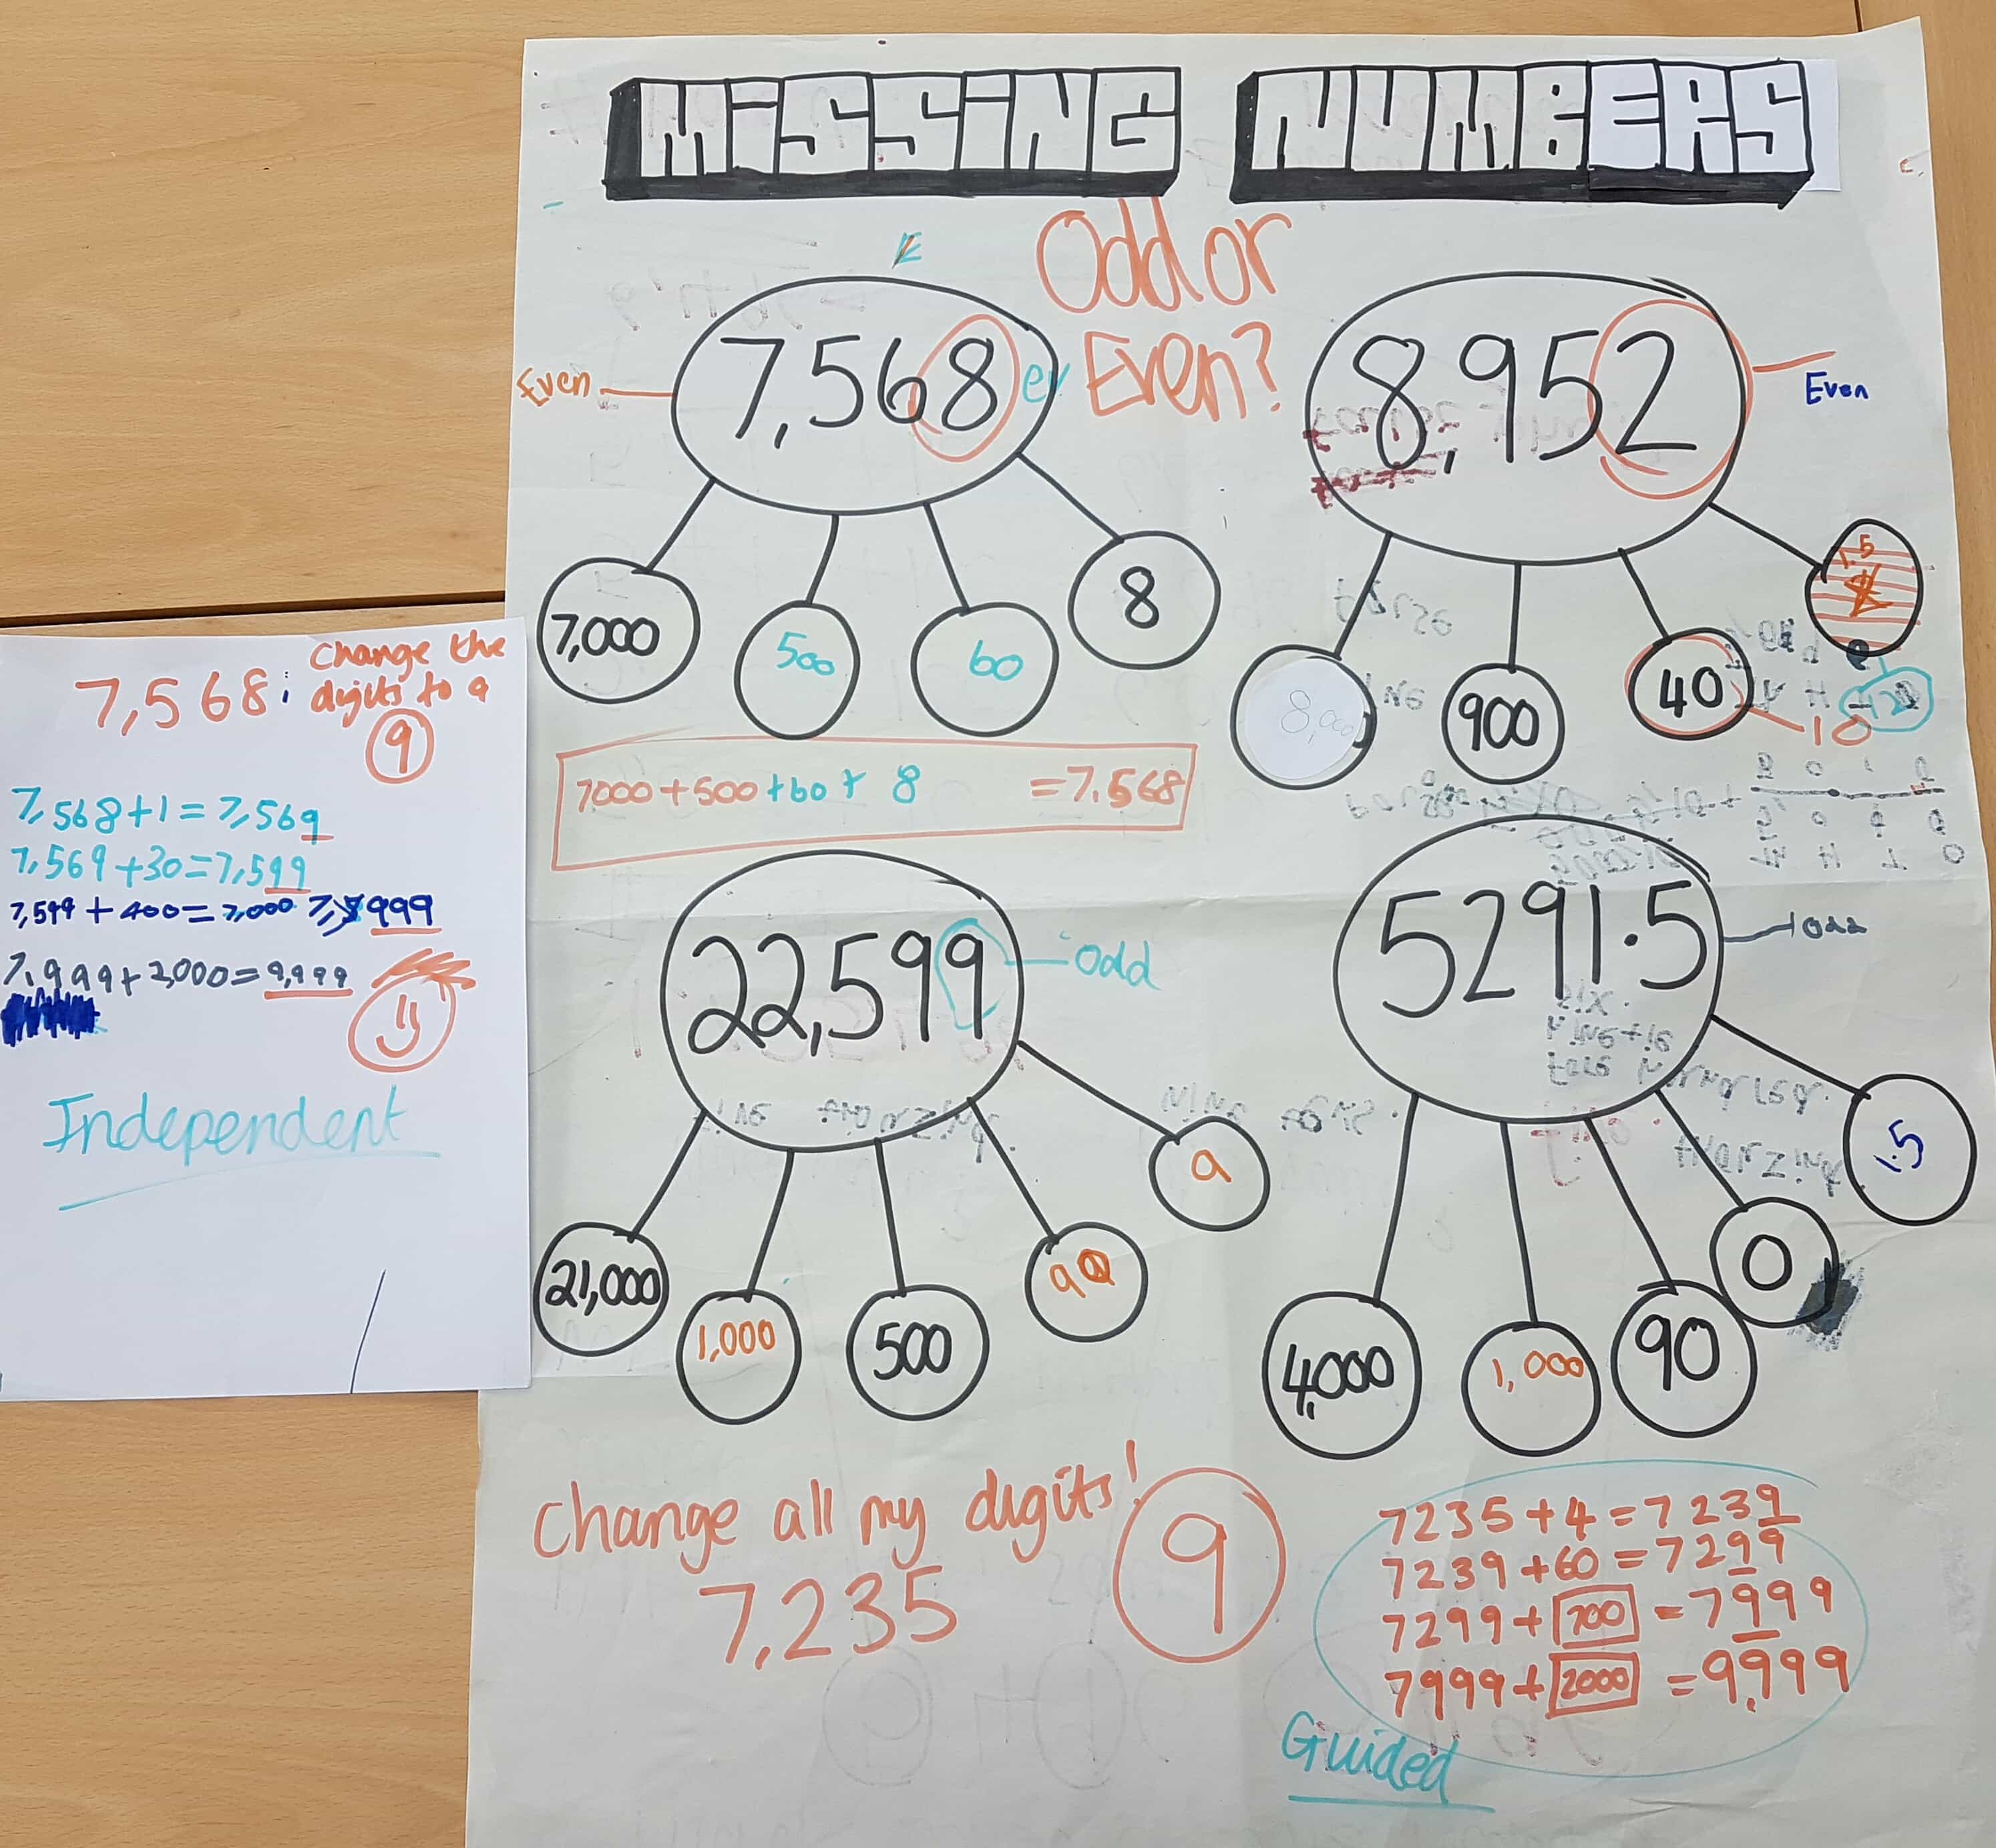 MiSSiNG NUMBERS
Odd or
Even?
E
Even
7,568
ev
7,000
500
60
8
7000+500+60+ 8 =7.568
8,952
Even
8,000
900
40
10
12
22,599
odd
21,000
1,000
500
90
9
5291.5
odd
4,000
1,000
90
0
1.5
Change all my digits!
7,235
9
7235+4=7239
7239+60=7299
7299+700=7999
7999+2000=9,999
Guided
7,568: Change the
digits to a
9
7,568+1=7,569
7,569+30=7,599
7,599+400=7,000 7,999
7,999+2,000=9,999
Independent